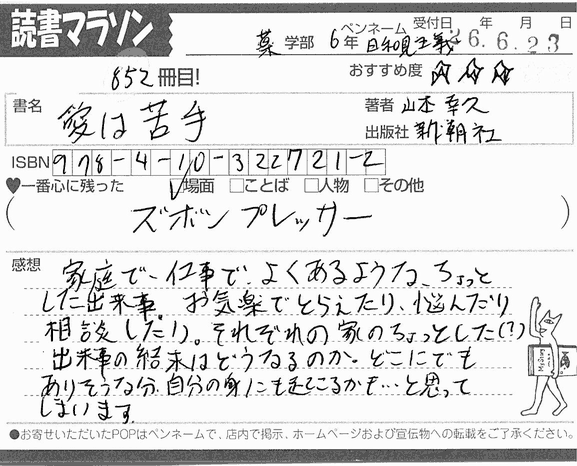 読書マラソン
受付日 年 月 日
26.6.23
薬 学部 6年 ペンネーム 日和見主義
852冊目!
おすすめ度 ☆☆☆
書名 愛は苦手
著者 山本幸久
出版社 新潮社
ISBN 978-4-10-322721-2
♥一番心に残った ☑場面 □ことば □人物 □その他
(ズボンプレッサー)
感想
家庭で、仕事で、よくあるような、ちょっと
した出来事。お気楽でとらえたり、悩んだり
相談したり。それぞれの家のちょっとした(?)
出来事の結末はどうなるのか。どこにでも
ありそうな分、自分の身にも起こるかも…と思って
しまいます。
●お寄せいただいたPOPはペンネームで、店内で掲示、ホームページおよび宣伝物への転載をご了承ください。